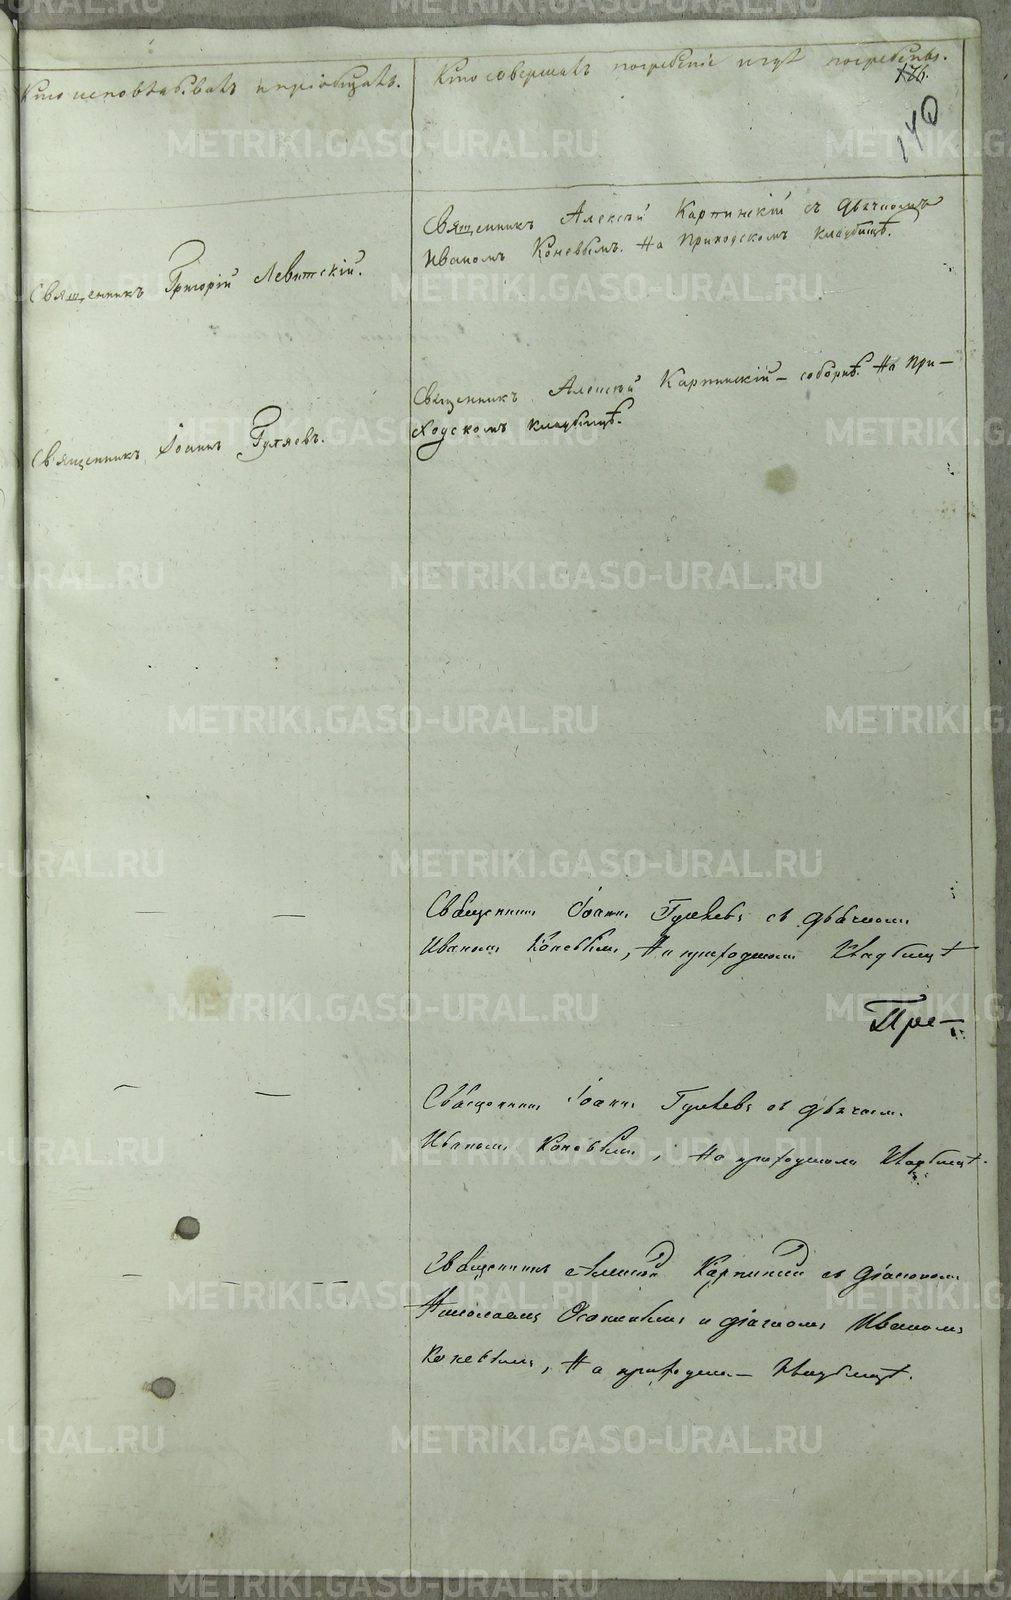 Кто исповѣдывалъ и пріобщалъ.
Кто совершалъ погребеніе и гдѣ погребены.
176.
140
Священникъ Григорій Левитскій.
Священникъ Алексѣй Карпинскій съ дьячкомъ
Иваномъ Коневымъ. На Приходскомъ кладбищѣ.
Священникъ Іоаннъ Гуляевъ.
Священникъ Алексѣй Карпинскій – соборнѣ. На При–
ходскомъ кладбищѣ.
Священникъ Іоаннъ Гуляевъ съ дьячкомъ
Иваномъ Коневымъ, На приходскомъ Кладбищѣ
Пре–
Священникъ Іоаннъ Гуляевъ съ дьячкомъ
Иваномъ Коневымъ, На приходскомъ Кладбищѣ.
Священникъ Алексѣй Карпинскій съ діакономъ
Николаемъ и дьячкомъ Иваномъ
Коневымъ, На приходско– Кладбищѣ.
METRIKI.GASO-URAL.RU